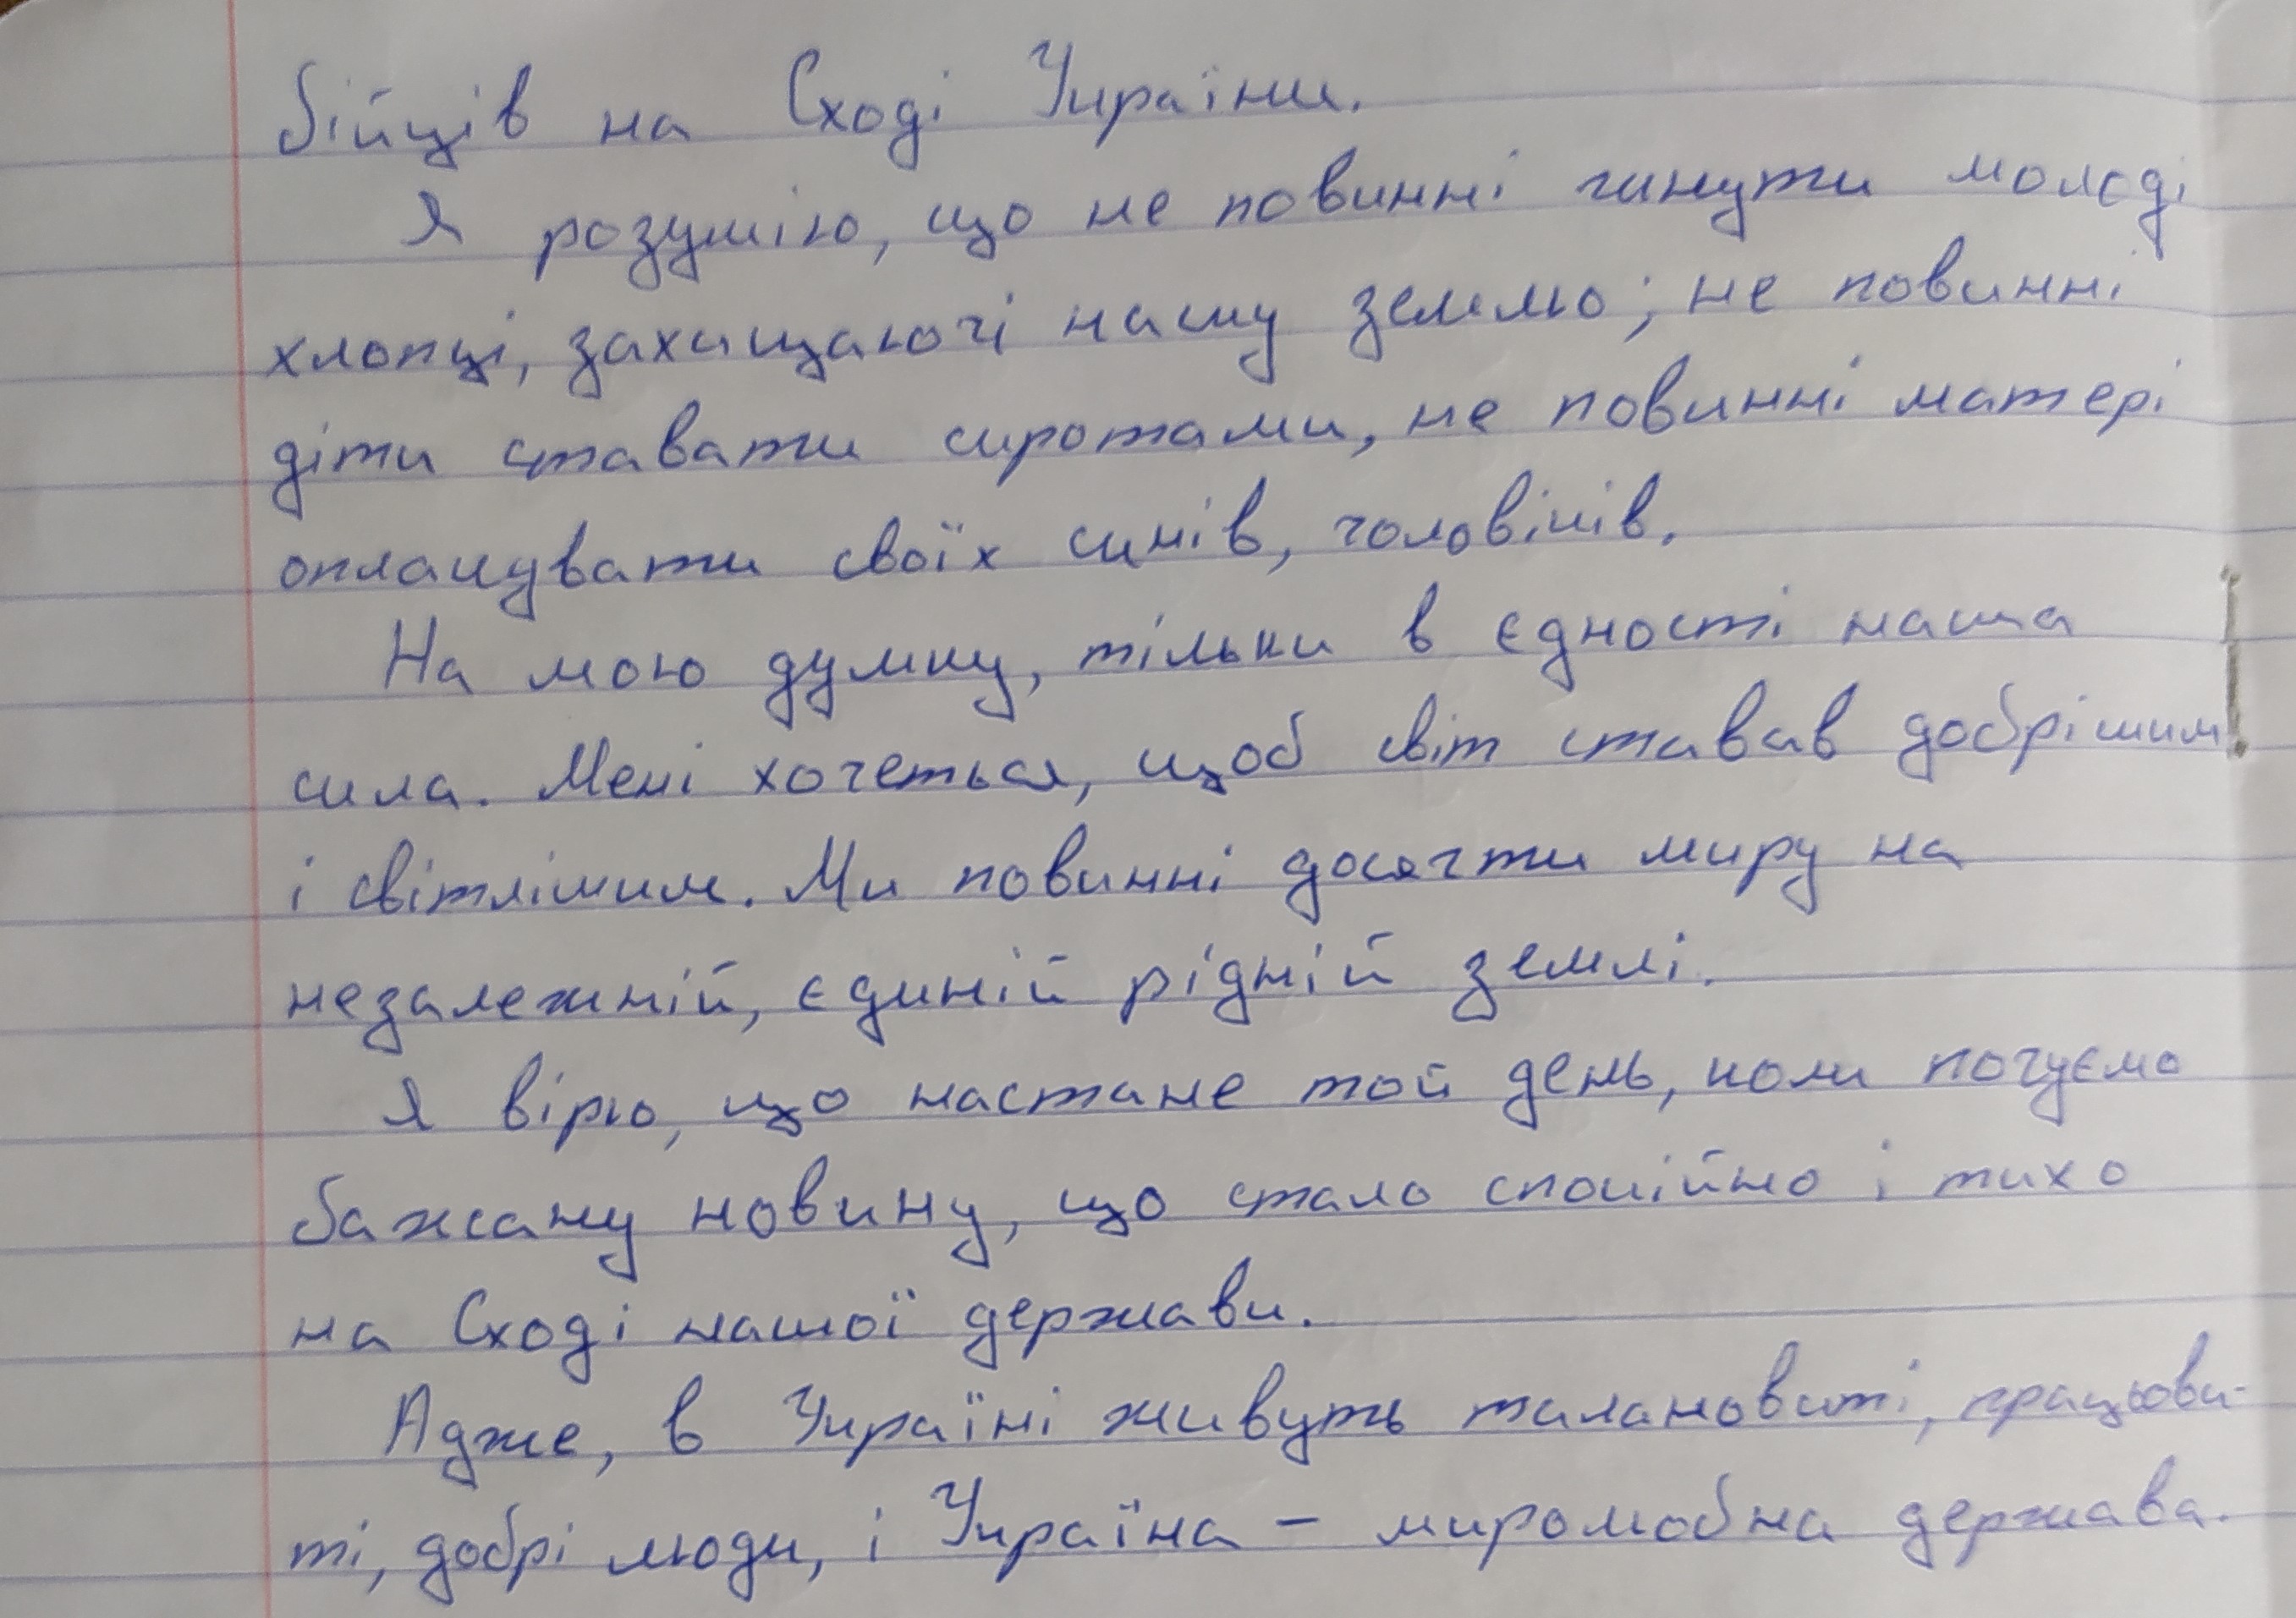 бійців на Сході України.
Я розумію, що не повинні гинути молоді
хлопці, захищаючі нашу землю; не повинні
діти ставати сиротами, не повинні матері
оплакувати своїх синів, чоловіків.
На мою думку, тільки в єдності наша
сила. Мені хочеться, щоб світ ставав добрішим
і світлішим. Ми повинні досягти миру на
незалежній, єдиній рідній землі.
Я вірю, що настане той день, коли почуємо
бажану новину, що стало спокійно і тихо
на Сході нашої держави.
Адже, в Україні живуть талановиті, працьови-
ті, добрі люди, і Україна – миролюбна держава.